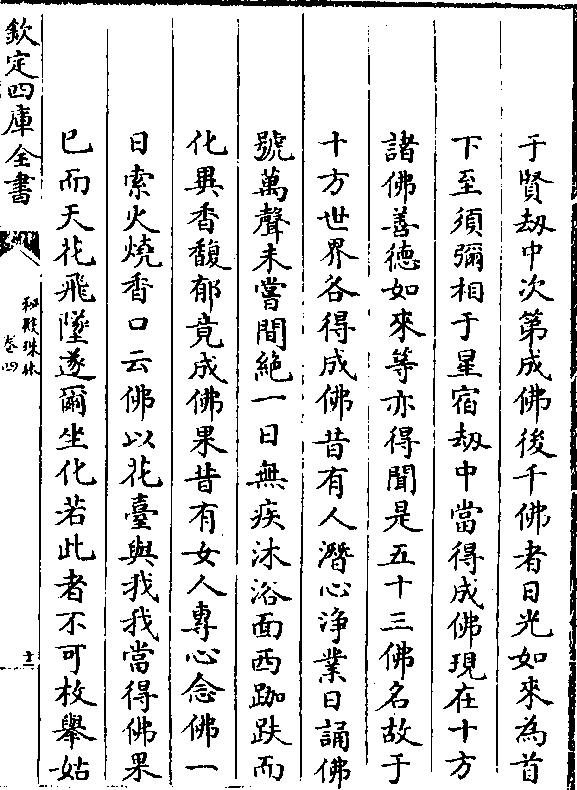 于賢刼中次第成佛後千佛者日光如來為首
下至須彌相于星宿刼中當得成佛現在十方
諸佛善德如來等亦得聞是五十三佛名故于
十方世界各得成佛昔有人潛心淨業日誦佛
號萬聲未嘗間絶一日無疾沐浴面西跏趺而
化異香馥郁竟成佛果昔有女人專心念佛一
日索火燒香口云佛以花臺與我我當得佛果
已而天花飛墜遂爾坐化若此者不可枚舉姑
欽定四庫全書
秘殿珠林
卷四